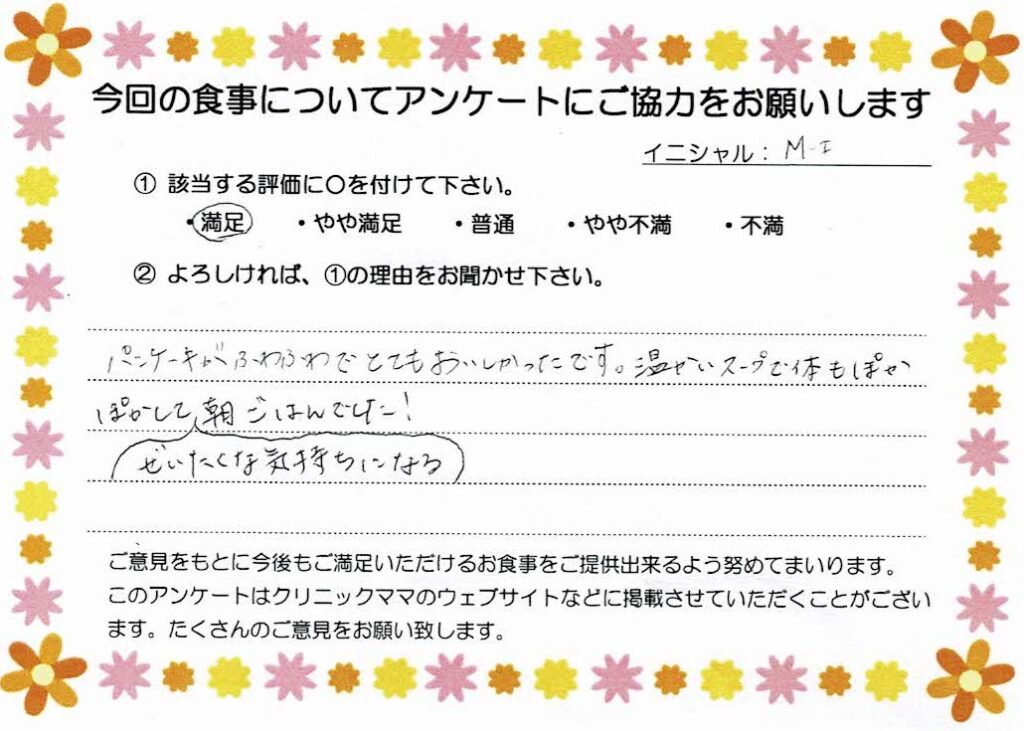 今回の食事についてアンケートにご協力をお願いします
イニシャル: M-I
① 該当する評価に〇を付けて下さい。
・満足 ・やや満足 ・普通 ・やや不満 ・不満
② よろしければ、①の理由をお聞かせ下さい。
パンケーキがふわふわでとてもおいしかったです。温かいスープで体もぽか
ぽかして朝ごはんでした!
ぜいたくな気持ちになる
ご意見をもとに今後もご満足いただけるお食事をご提供出来るよう努めてまいります。
このアンケートはクリニックママのウェブサイトなどに掲載させていただくことがござい
ます。たくさんのご意見をお願い致します。